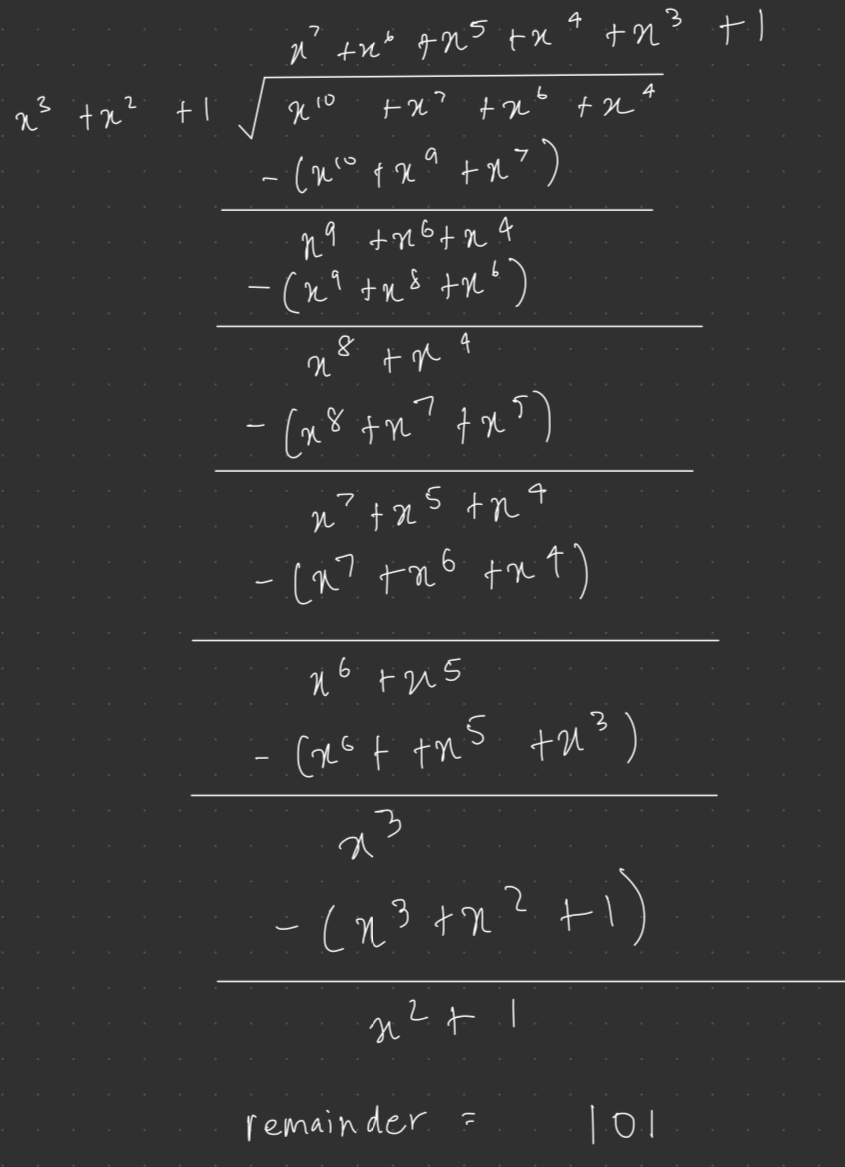 x⁷ + x⁶ + x⁵ + x⁴ + x³ + 1
x³ + x² + 1 √ x¹⁰ + x⁷ + x⁶ + x⁴
- (x¹⁰ + x⁹ + x⁷)
x⁹ + x⁶ + x⁴
- (x⁹ + x⁸ + x⁶)
x⁸ + x⁴
- (x⁸ + x⁷ + x⁵)
x⁷ + x⁵ + x⁴
- (x⁷ + x⁶ + x⁴)
x⁶ + x⁵
- (x⁶ + + x⁵ + x³)
x³
- (x³ + x² + 1)
x² + 1
remainder = 101